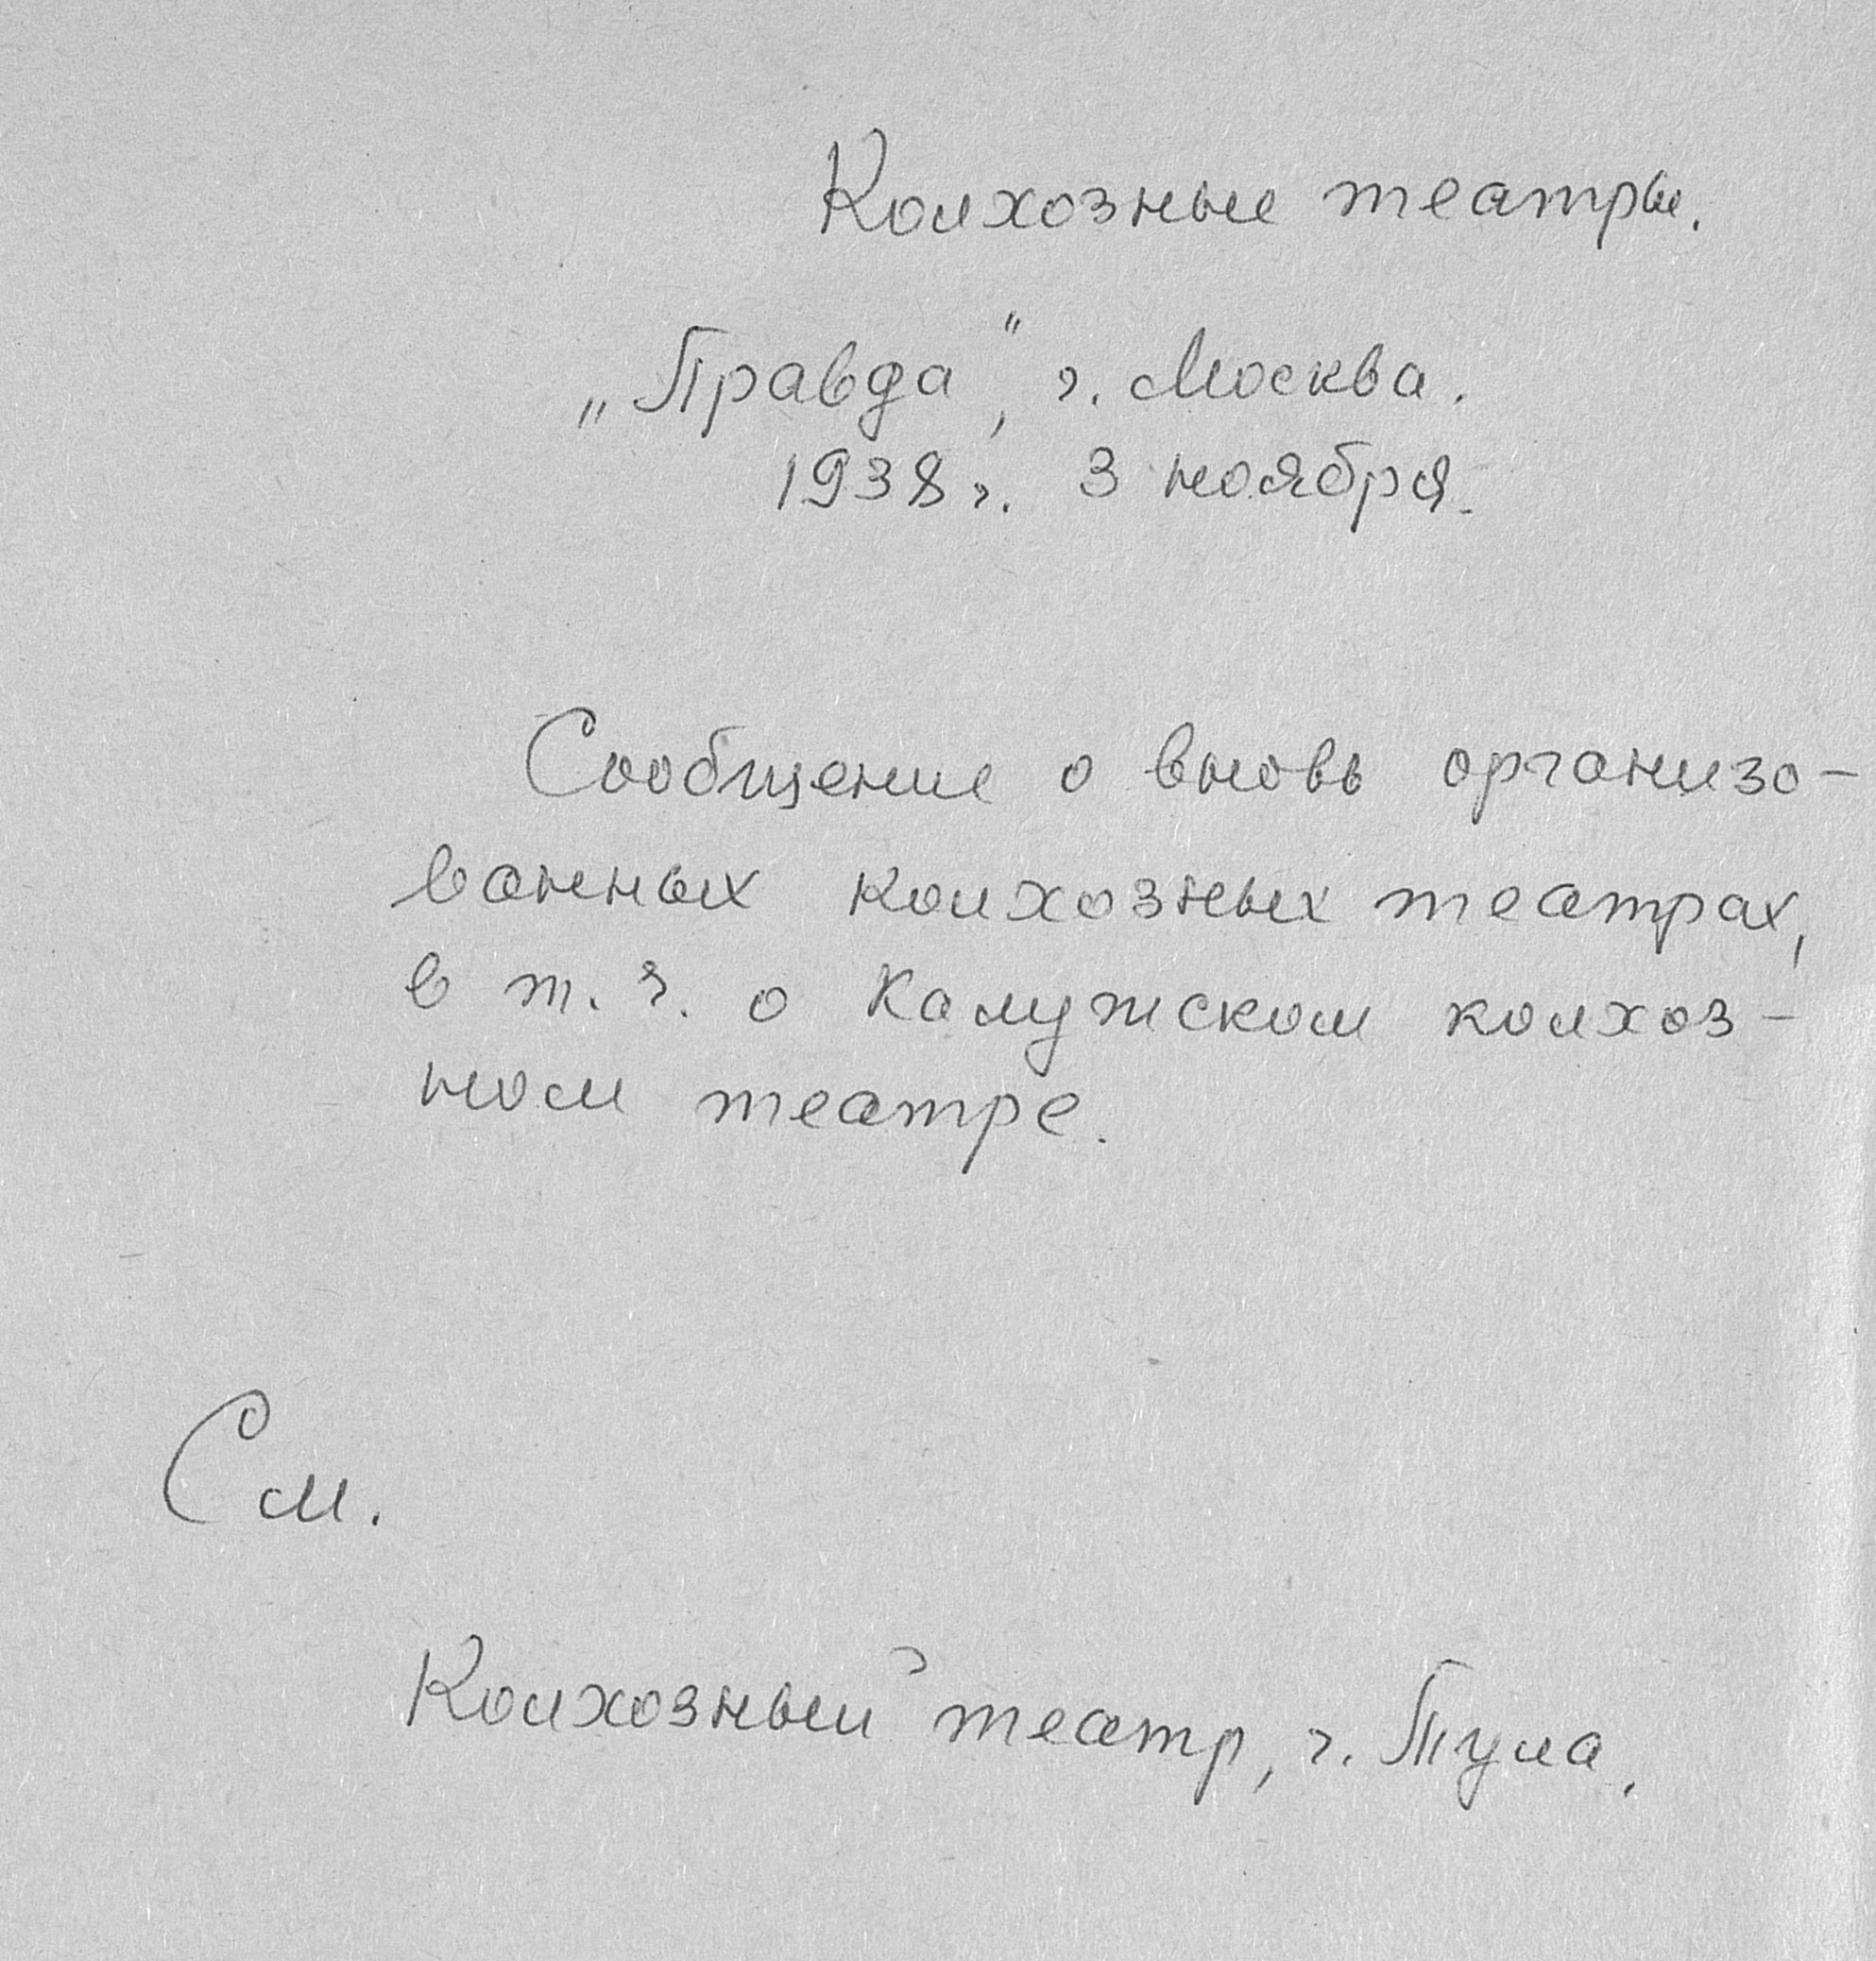 Колхозные театры.
„Правда“, г. Москва.
1938 г. 3 ноября.
Сообщение о вновь организо-
ванных колхозных театрах,
в т. ч. о Калужском колхоз-
ном театре.
См.
Колхозный театр, г. Тула.